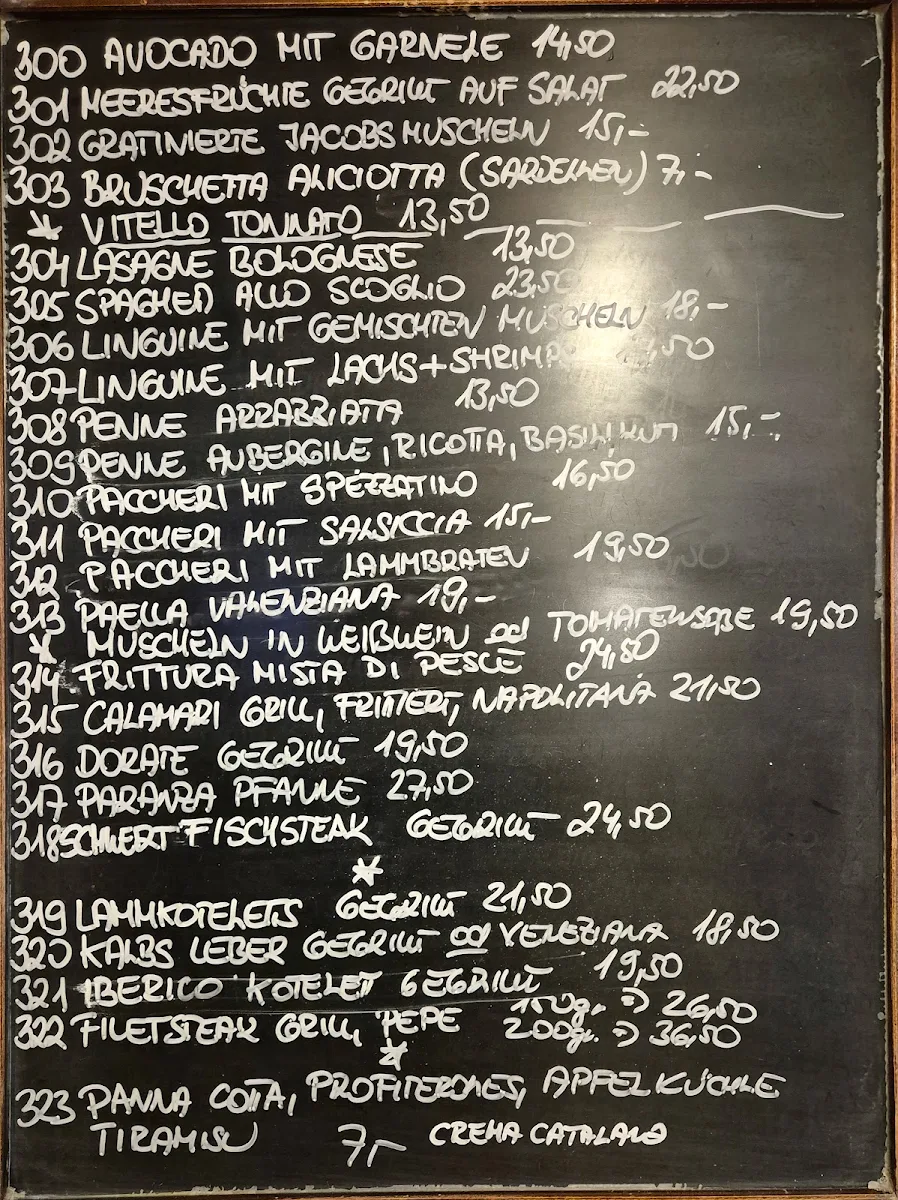 300 AVOCADO MIT GARNELE 14,50
301 MEERESFRÜCHTE GEGRILLT AUF SALAT 22,50
302 GRATINIERTE JACOBSMUSCHELN 15,-
303 BRUSCHETTA ALICIOTTA (SARDELLEN) 7,-
* VITELLO TONNATO 13,50
304 LASAGNE BOLOGNESE 13,50
305 SPAGHETTI ALLO SCOGLIO 23,50
306 LINGUINE MIT GEMISCHTEN MUSCHELN 18,-
307 LINGUINE MIT LACHS+SHRIMPS
308 PENNE ARRABBIATA 13,50
309 PENNE AUBERGINE, RICOTTA, BASILIKUM 15,-
310 PACCHERI MIT SPEZZATINO 16,50
311 PACCHERI MIT SALSICCIA 15,-
312 PACCHERI MIT LAMMBRATEN 19,50
313 PAELLA VALENZIANA 19,-
* MUSCHELN IN WEIßWEIN od TOMATENSOßE 19,50
314 FRITTURA MISTA DI PESCE 24,50
315 CALAMARI GRILL, FRITTIERT, NAPOLITANA 21,50
316 DORATE GEGRILLT 19,50
317 PARANZA PFANNE 27,50
318 SCHWERTFISCHSTEAK GEGRILLT 24,50
*
319 LAMMKOTELETTS GEGRILLT 21,50
320 KALBS LEBER GEGRILLT od VENEZIANA 18,50
321 IBERICO KOTELET GEGRILLT 19,50
322 FILETSTEAK GRILL, PEPE 150gr. => 26,50
200gr. => 36,50
*
323 PANNA COTTA, PROFITEROLES, APFELKÜCHLE
TIRAMISU 7,- CREMA CATALANA